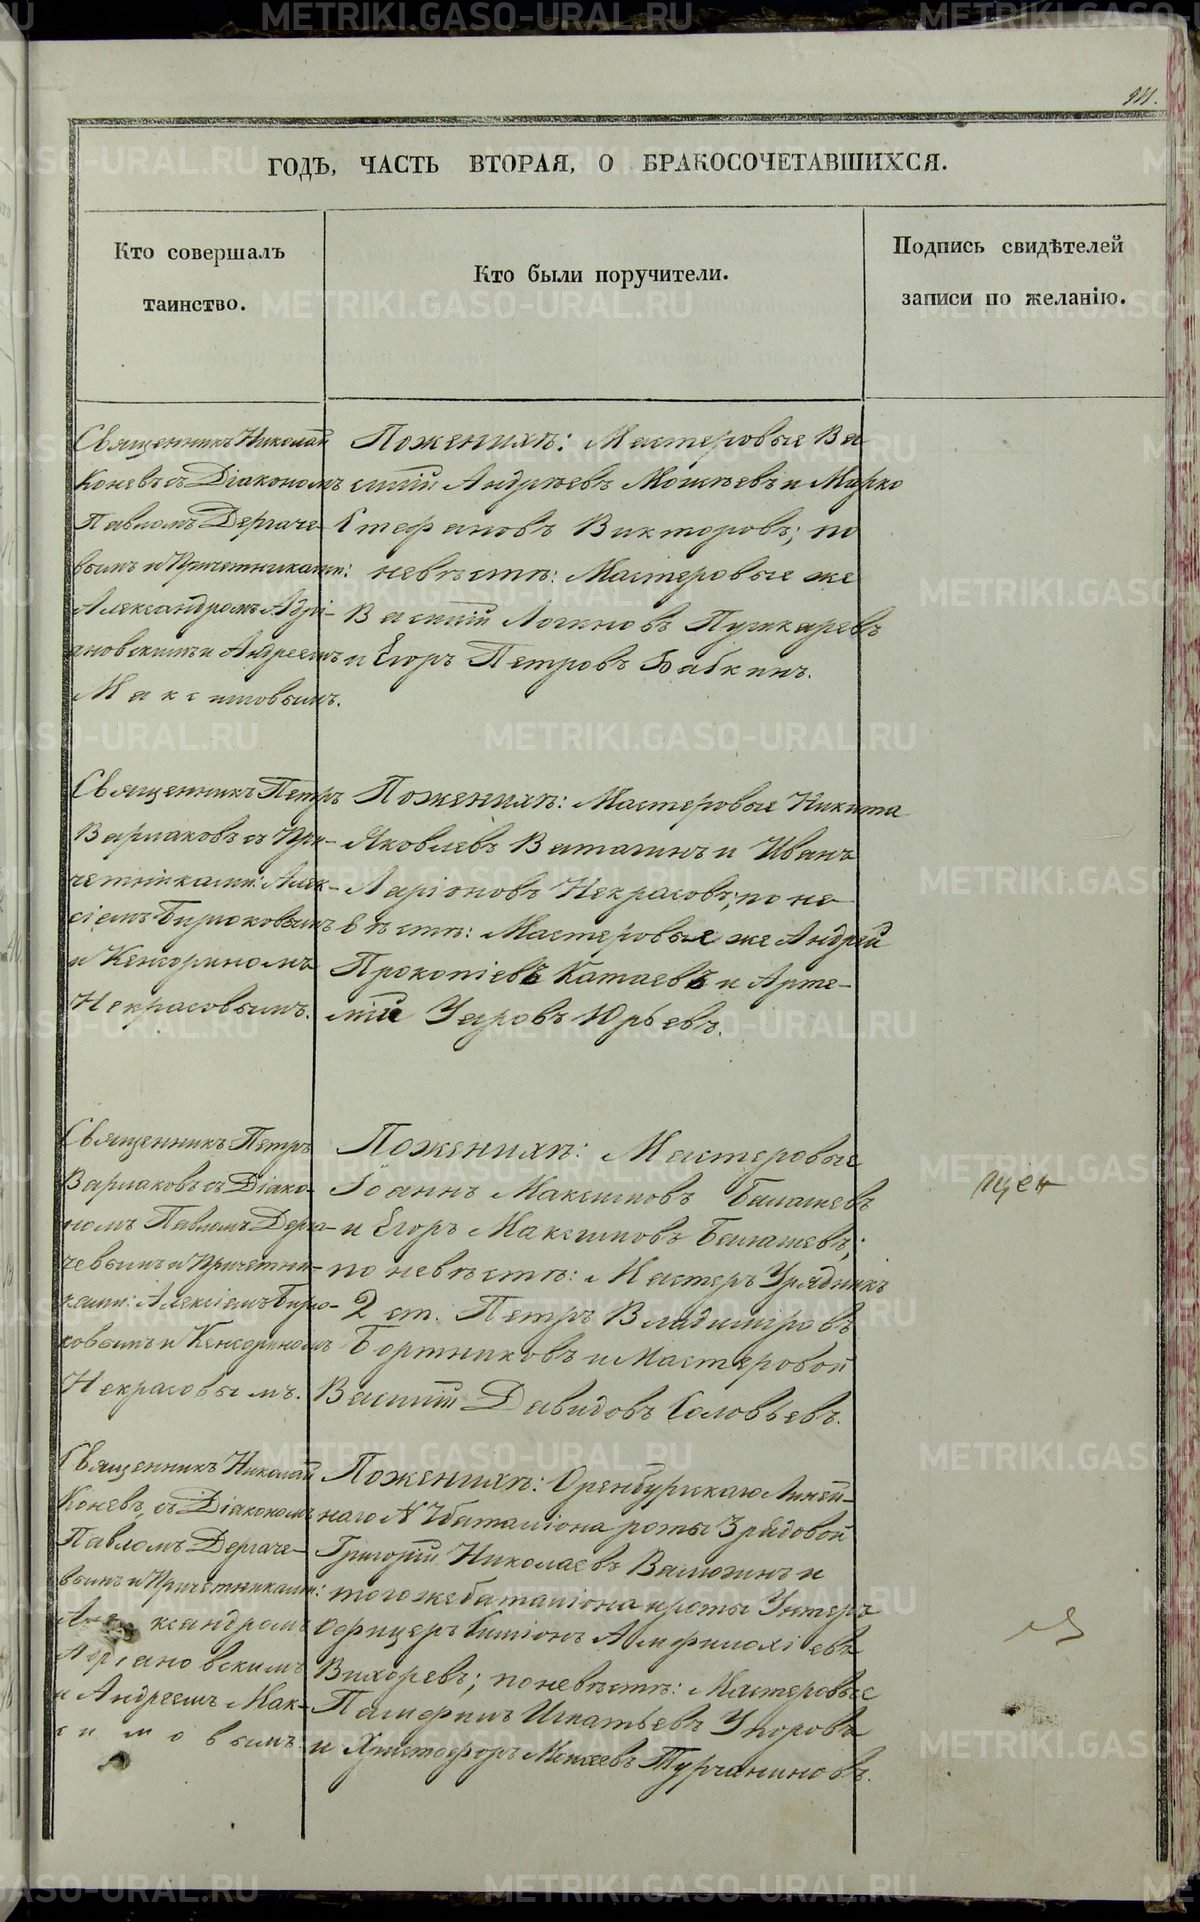 ГОДЪ, ЧАСТЬ ВТОРАЯ, О БРАКОСОЧЕТАВШИХСЯ.
Кто совершалъ
таинство.
Кто были поручители.
Подпись свидѣтелей
записи по желанію.
Священникъ Николай
Коневъ съ Діакономъ
Павломъ Дергаче-
вымъ и Причетниками:
Александромъ Адрі-
ановскимъ и Андреемъ
Максимовымъ.
По женихѣ: Мастеровые Ва
силій Андреевъ Мошевъ и Марко
Стефановъ Викторовъ; по
невѣстѣ: Мастеровые же
Василій Логиновъ Пушкаревъ
и Егоръ Петровъ Бабкинъ.
Священникъ Петръ
Варлаковъ съ При-
четниками: Алек-
сіемъ Бирюковымъ
и Кенсориномъ
Некрасовымъ.
По женихѣ: Мастеровые Никита
Яковлевъ Ваталинъ и Иванъ
Ларіоновъ Некрасовъ; по не-
вѣстѣ: Мастеровые же Андрей
Прокопіевъ Катаевъ и Арте-
мій Уаровъ Юрьевъ.
Священникъ Петръ
Варлаковъ съ Діако-
номъ Павломъ Дерга-
чевымъ и Причетни-
ками: Алексіемъ Бирю-
ковымъ и Кенсориномъ
Некрасовымъ.
По женихѣ: Мастеровые
Іоаннъ Максимовъ Балашевъ
и Егоръ Максимовъ Балашевъ;
по невѣстѣ: Мастеръ Урядникъ
2 ст. Петръ Владиміровъ
Бортниковъ и Мастеровой
Василій Давидовъ Соловьевъ.
Священникъ Николай
Коневъ, съ Діакономъ
Павломъ Дергаче-
вымъ и Причетниками:
Александромъ
Адріановскимъ
и Андреемъ Мак-
симовымъ.
По женихѣ: Оренбургскаго Линей-
наго N баталіона роты 3 рядовой
Григорій Николаевъ Валюгинъ и
того же баталіона и роты Унтеръ
Офицеръ Симіонъ Амфилохіевъ
Вихоревъ; по невѣстѣ: Мастеровые
Памфилъ Игнатьевъ Упоровъ
и Христофоръ Моисеевъ Турчаниновъ.
METRIKI.GASO-URAL.RU